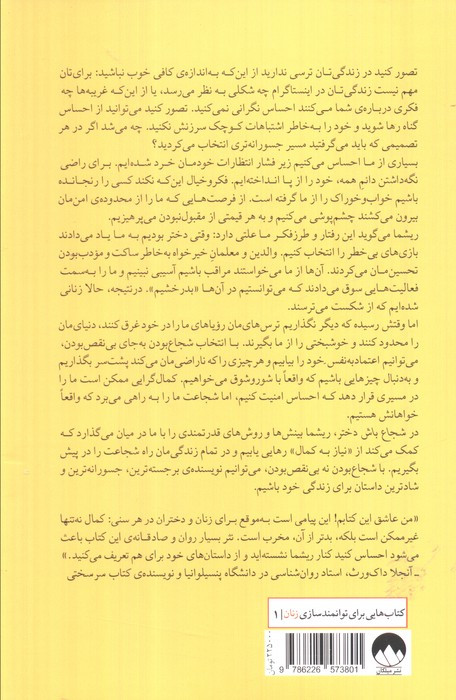 تصور کنید در زندگی‌تان ترسی ندارید از این‌که به‌اندازه‌ی کافی خوب نباشید: برای‌تان
مهم نیست زندگی‌تان در اینستاگرام چه شکلی به نظر می‌رسد، یا از این‌که غریبه‌ها چه
فکری درباره‌ی شما می‌کنند احساس نگرانی نمی‌کنید. تصور کنید می‌توانید از احساس
گناه رها شوید و خود را به‌خاطر اشتباهات کوچک سرزنش نکنید. چه می‌شد اگر در هر
تصمیمی که باید می‌گرفتید مسیر جسورانه‌تری انتخاب می‌کردید؟
بسیاری از ما احساس می‌کنیم زیر فشار انتظارات خودمان خرد شده‌ایم. برای راضی
نگه‌داشتن دائمِ همه، خود را از پا انداخته‌ایم. فکروخیال این‌که نکند کسی را رنجانده
باشیم خواب‌وخوراک را از ما گرفته است. از فرصت‌هایی که ما را از محدوده‌ی امن‌مان
بیرون می‌کشند چشم‌پوشی می‌کنیم و به هر قیمتی از مقبول‌نبودن می‌پرهیزیم.
ریشما می‌گوید این رفتار و طرزفکر ما علتی دارد: وقتی دختر بودیم به ما یاد می‌دادند
بازی‌های بی‌خطر را انتخاب کنیم. والدین و معلمانِ خیرخواه به‌خاطر ساکت و مؤدب‌بودن
تحسین‌مان می‌کردند. آن‌ها از ما می‌خواستند مراقب باشیم آسیبی نبینیم و ما را به‌سمت
فعالیت‌هایی سوق می‌دادند که می‌توانستیم در آن‌ها «بدرخشیم». درنتیجه، حالا زنانی
شده‌ایم که از شکست می‌ترسند.
اما وقتش رسیده که دیگر نگذاریم ترس‌های‌مان رؤیاهای ما را در خود غرق کنند، دنیای‌مان
را محدود کنند و خوشبختی را از ما بگیرند. با انتخاب شجاع‌بودن به‌جای بی‌نقص‌بودن،
می‌توانیم اعتمادبه‌نفس خود را بیابیم و هرچیزی را که ناراضی‌مان می‌کند پشت‌سر بگذاریم
و به‌دنبال چیزهایی باشیم که واقعاً با شوروشوق می‌خواهیم. کمال‌گرایی ممکن است ما را
در مسیری قرار دهد که احساس امنیت کنیم، اما شجاعت ما را به راهی می‌برد که واقعاً
خواهانش هستیم.
در شجاع باش دختر، ریشما بینش‌ها و روش‌های قدرتمندی را با ما در میان می‌گذارد که
کمک می‌کند از «نیاز به کمال» رهایی یابیم و در تمام زندگی‌مان راه شجاعت را در پیش
بگیریم. با شجاع‌بودن نه بی‌نقص‌بودن، می‌توانیم نویسنده‌ی برجسته‌ترین، جسورانه‌ترین و
شادترین داستان برای زندگی خود باشیم.
«من عاشق این کتابم! این پیامی است به‌موقع برای زنان و دختران در هر سنی: کمال نه‌تنها
غیرممکن است بلکه، بدتر از آن، مخرب است. نثر بسیار روان و صادقانه‌ی این کتاب باعث
می‌شود احساس کنید کنار ریشما نشسته‌اید و از داستان‌های خود برای هم تعریف می‌کنید.»
ـ آنجلا داک‌ورث، استاد روان‌شناسی در دانشگاه پنسیلوانیا و نویسنده‌ی کتاب سرسختی
کتاب‌هایی برای توانمندسازی زنان | ۱
نشر میلکان
۲۲۵۰۰۰ تومان
9 786226 573801